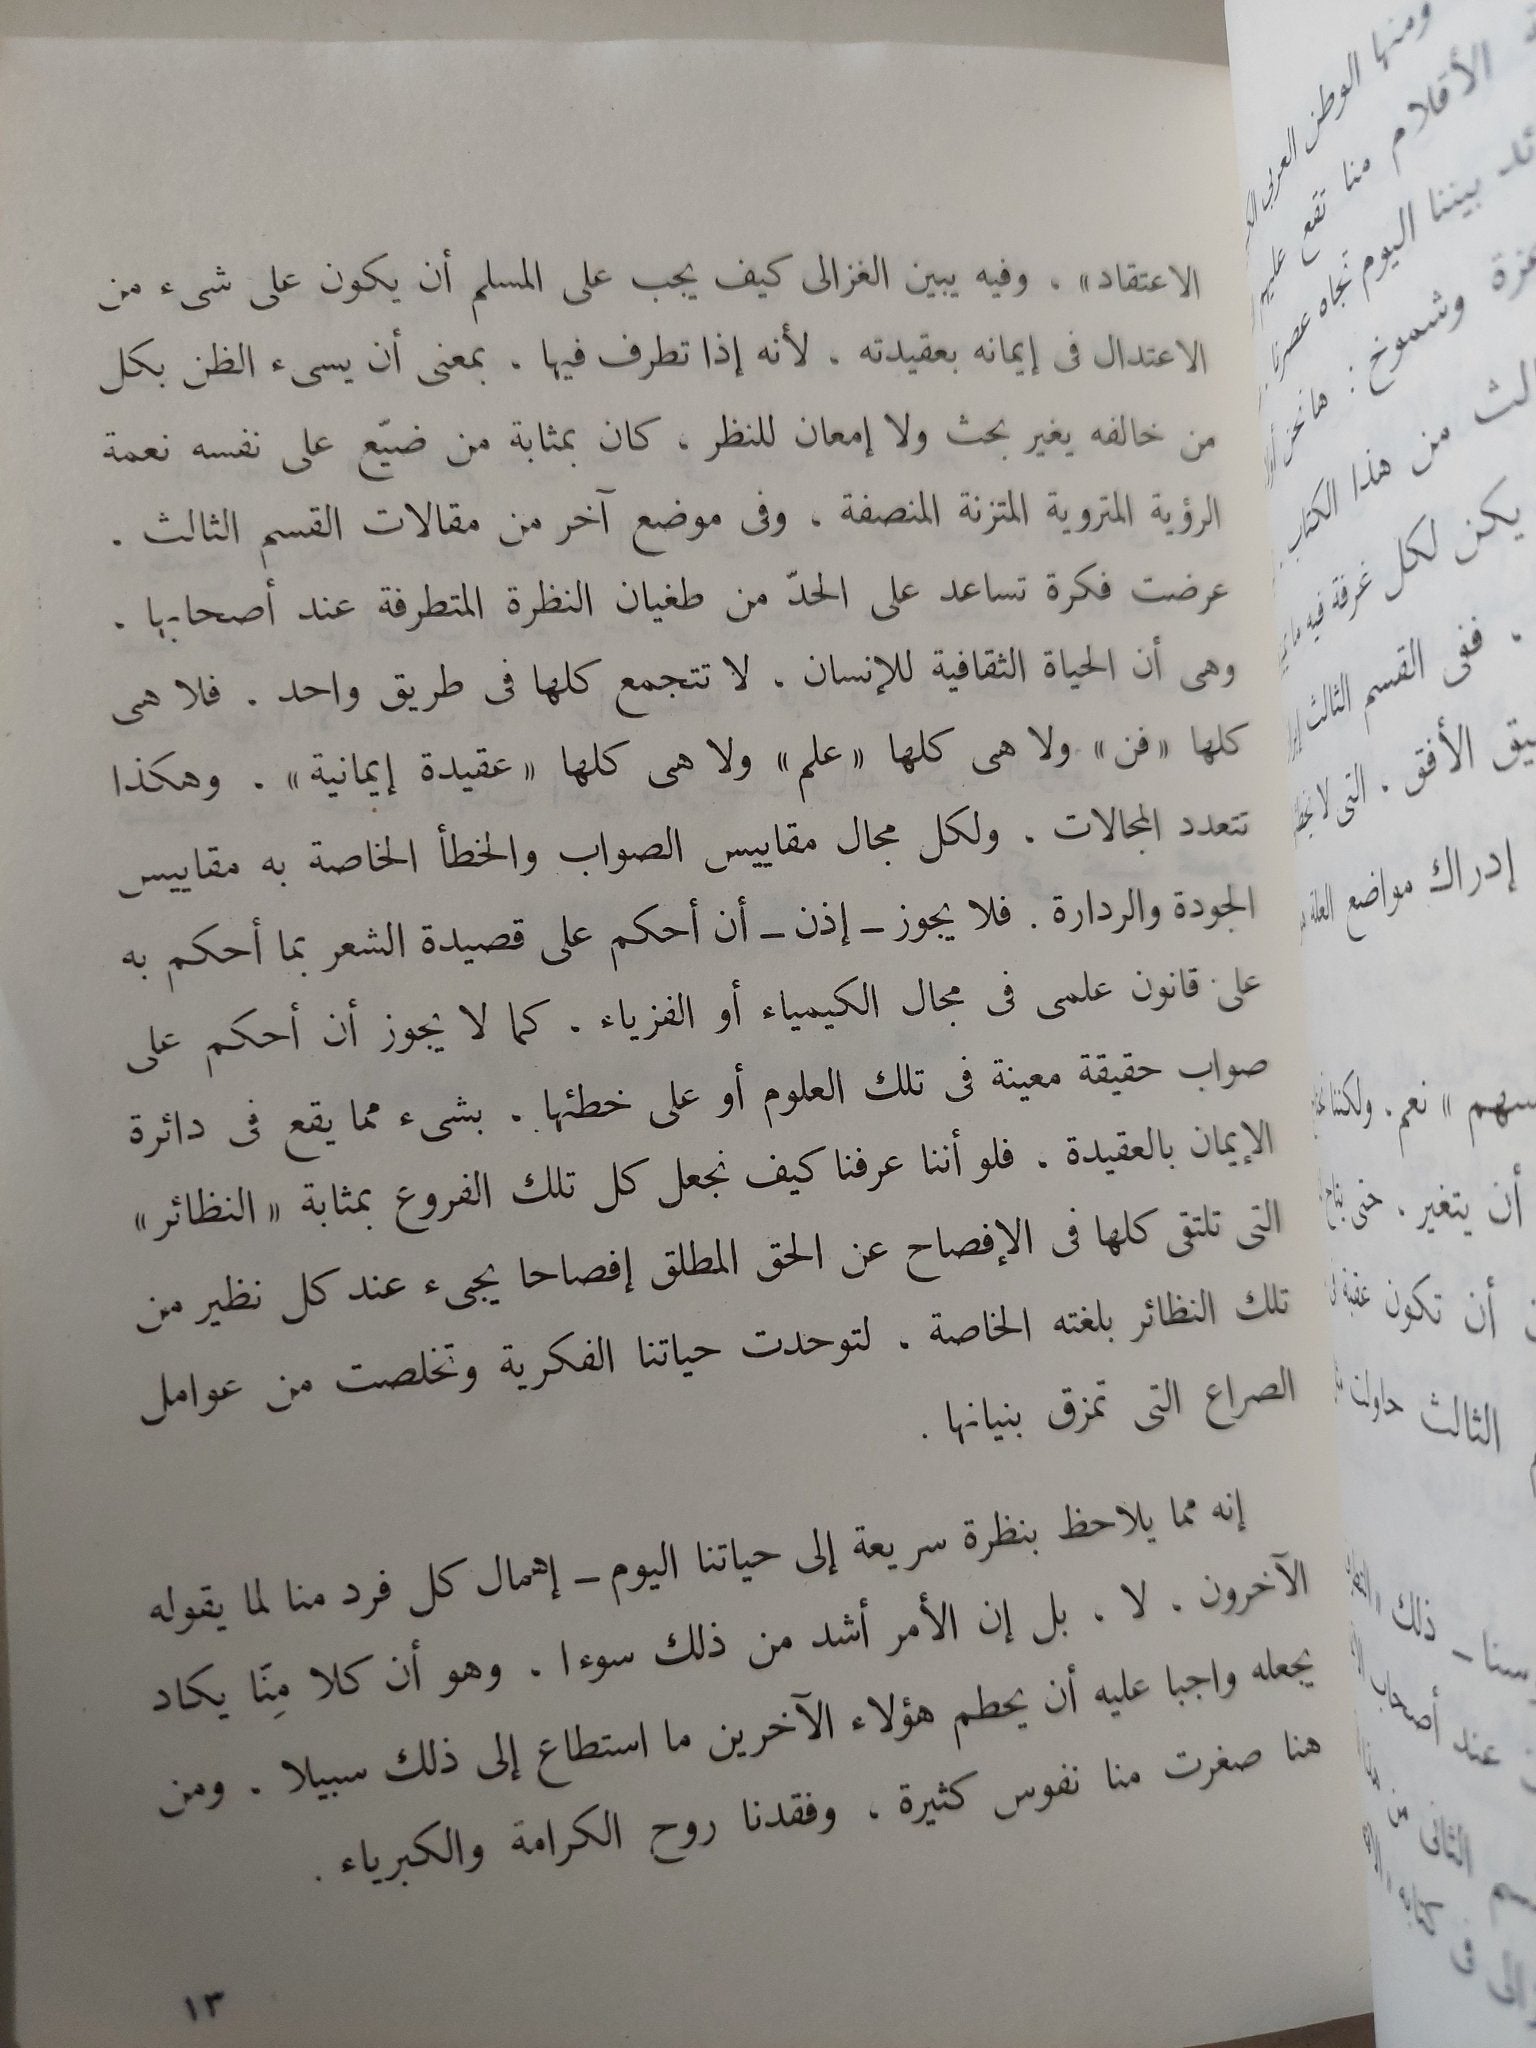 الاعتقاد» . وفيه يبين الغزالى كيف يجب على المسلم أن يكون على شىء من
الاعتدال فى إيمانه بعقيدته ، لأنه إذا تطرف فيها ، بمعنى أن يسىء الظن بكل
من خالفه يغير بحث ولا إمعان للنظر ، كان بمثابة من ضيّع على نفسه نعمة
الرؤية المتروية المتزنة المنصفة ، وفى موضع آخر من مقالات القسم الثالث .
عرضت فكرة تساعد على الحدّ من طغيان النظرة المتطرفة عند أصحابها .
وهى أن الحياة الثقافية للإنسان ، لا تتجمع كلها فى طريق واحد . فلا هى
كلها «فن» ولا هى كلها «علم» ولا هى كلها «عقيدة إيمانية» . وهكذا
تتعدد المجالات . ولكل مجال مقاييس الصواب والخطأ الخاصة به مقاييس
الجودة والردارة . فلا يجوز ــ إذن ــ أن أحكم على قصيدة الشعر بما أحكم به
على قانون علمى فى مجال الكيمياء أو الفزياء . كما لا يجوز أن أحكم على
صواب حقيقة معينة فى تلك العلوم أو على خطئها . بشىء مما يقع فى دائرة
الإيمان بالعقيدة . فلو أننا عرفنا كيف نجعل كل تلك الفروع بمثابة «النظائر»
التى تلتقى كلها فى الإفصاح عن الحق المطلق إفصاحا يجىء عند كل نظير من
تلك النظائر بلغته الخاصة . لتوحدت حياتنا الفكرية وتخلصت من عوامل
الصراع التى تمزق بنيانها .
إنه مما يلاحظ بنظرة سريعة إلى حياتنا اليوم ــ إهمال كل فرد منا لما يقوله
الآخرون . لا . بل إن الأمر أشد من ذلك سوءا . وهو أن كلا مِنّا يكاد
يجعله واجبا عليه أن يحطم هؤلاء الآخرين ما استطاع إلى ذلك سبيلا . ومن
هنا صغرت منا نفوس كثيرة ، وفقدنا روح الكرامة والكبرياء .
١٣
ومنها الوطن العربى
الأقلام منا تقع عليهم
بيننا اليوم تجاه عصرنا
وشموخ : هانحن
من هذا الكتاب
يكن لكل غرفة فيه
. ففى القسم الثالث
الأفق . التى لا
إدراك مواضع العلة
» نعم . ولكننا
أن يتغير . حتى
أن تكون
الثالث حاولت
ــ ذلك
عند أصحاب
الثانى من